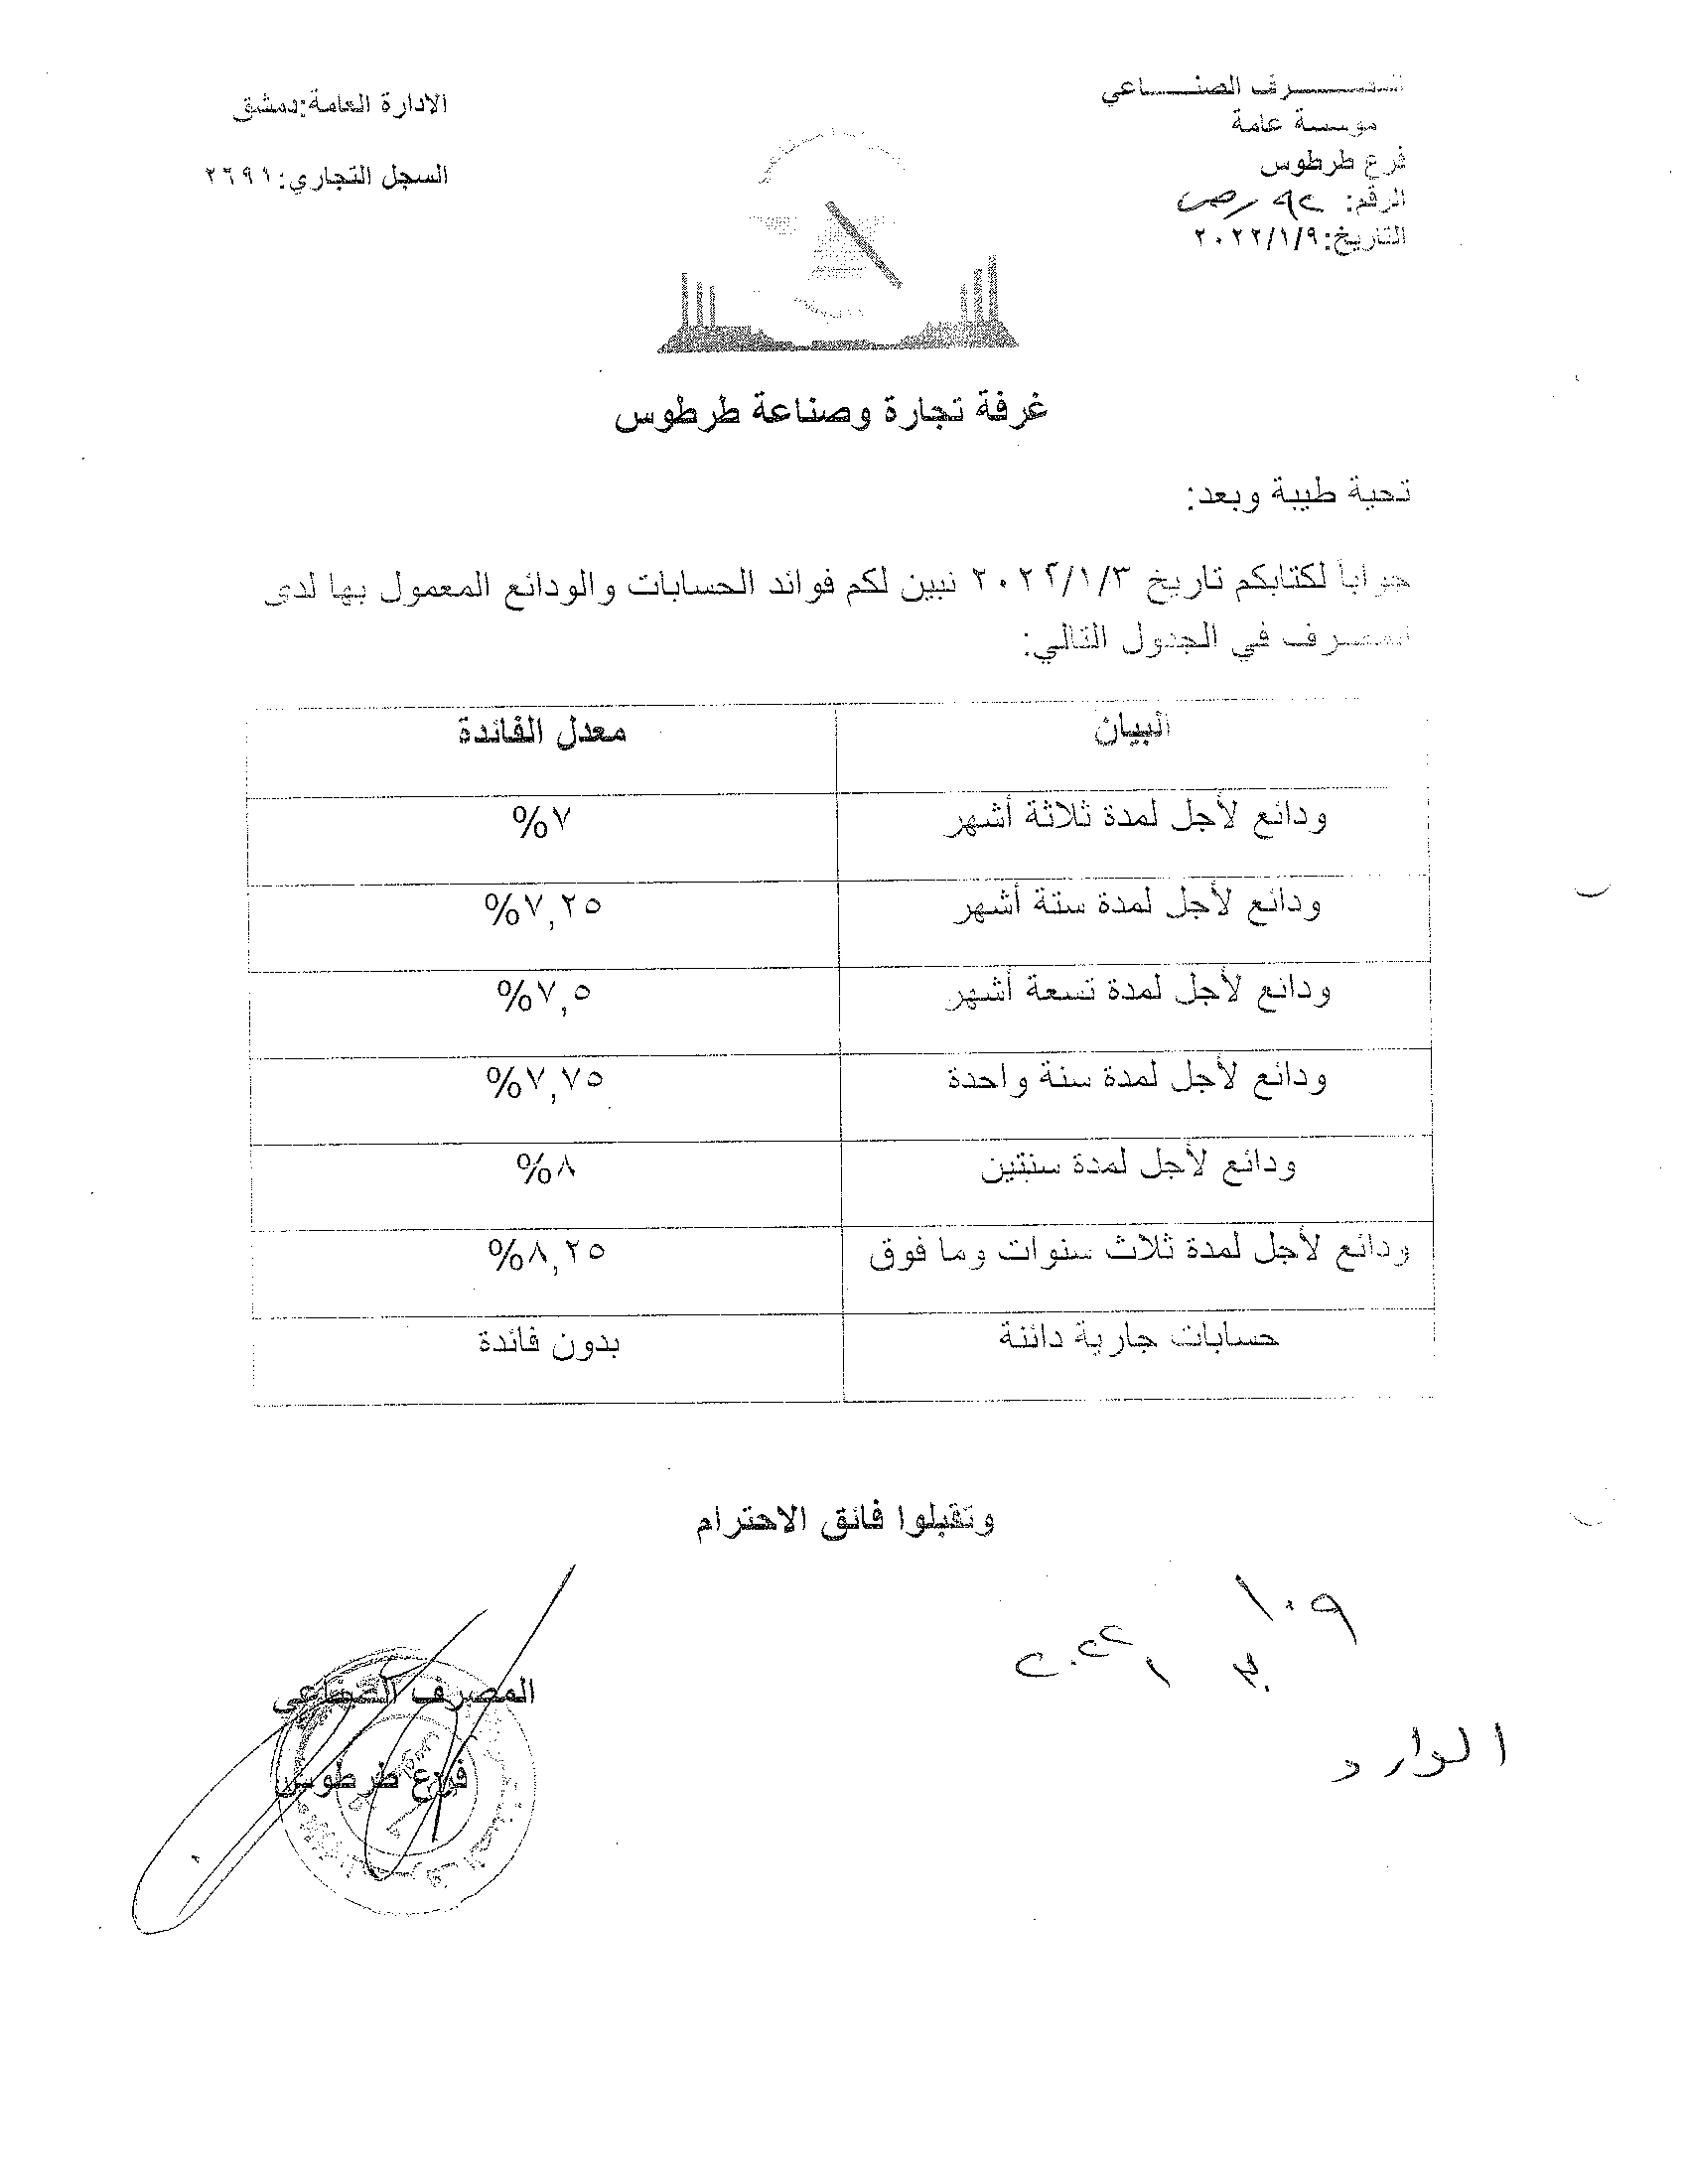 المصـــــرف الصنـــــاعي
موسسة عامة
فرع طرطوس
الرقم: ٩٢ /ص
التاريخ:٢٠٢٢/١/٩
الادارة العامة:دمشق
السجل التجاري:٢٦٩١
غرفة تجارة وصناعة طرطوس
تحية طيبة وبعد:
جواباً لكتابكم تاريخ ٢٠٢٢/١/٣ نبين لكم فوائد الحسابات والودائع المعمول بها لدى
المصرف في الجدول التالي:
البيان معدل الفائدة
ودائع لأجل لمدة ثلاثة أشهر ٧%
ودائع لأجل لمدة ستة أشهر ٧,٢٥%
ودائع لأجل لمدة تسعة أشهر ٧,٥%
ودائع لأجل لمدة سنة واحدة ٧,٧٥%
ودائع لأجل لمدة سنتين ٨%
ودائع لأجل لمدة ثلاث سنوات وما فوق ٨,٢٥%
حسابات جارية دائنة بدون فائدة
وتقبلوا فائق الاحترام
١٠٩
٢٠٢٢ ١
الوارد
المصرف الصناعي
فرع طرطوس